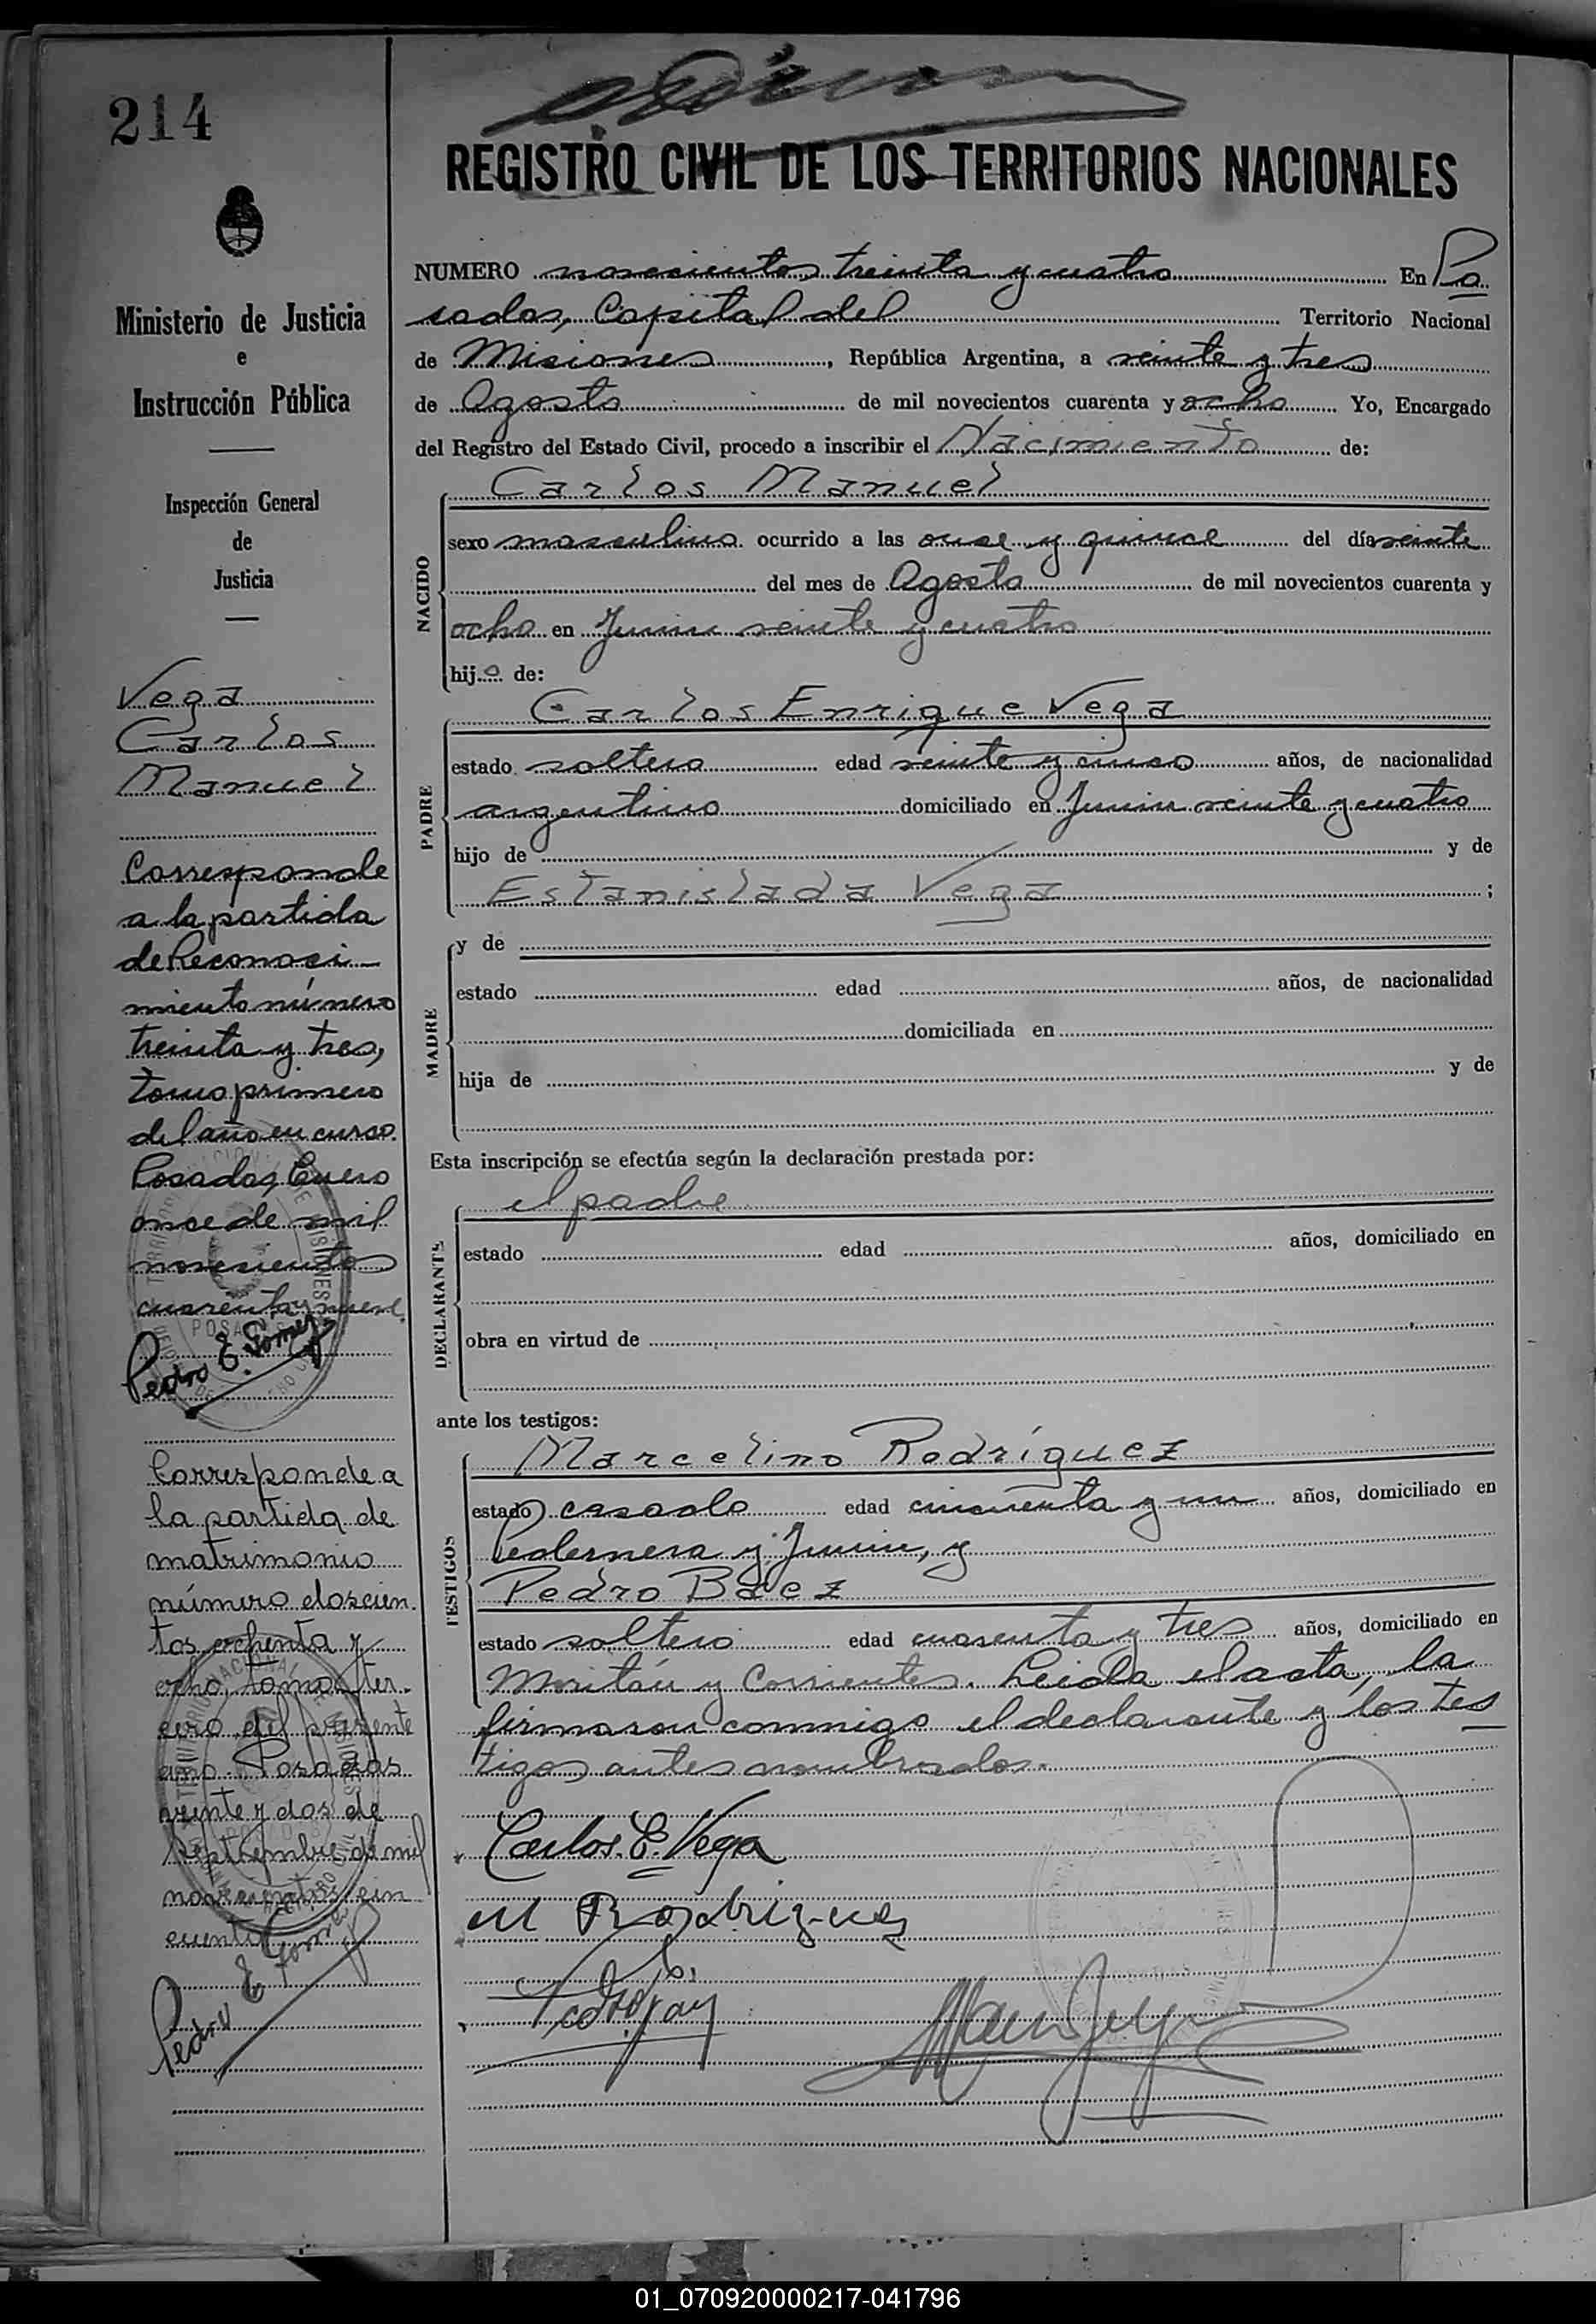 214
REGISTRO CIVIL DE LOS TERRITORIOS NACIONALES
Ministerio de Justicia
e
Instrucción Pública
Inspección General
de
Justicia
Vega
Carlos
Manuel
Corresponde
a la partida
de Reconoci-
miento número
treinta y tres,
tomo primero
del año en curso.
Posadas, Enero
once de mil
novecientos
cuarenta y nueve.
Pedro E. Gomez
Corresponde a
la partida de
matrimonio
número doscien
tos ochenta y
ocho, tomo ter-
cero del presente
año. Posadas
veinte y dos de
Septiembre de mil
novecientos cin
cuenta
Pedro E Gomez
NUMERO novecientos treinta y cuatro En Po
sadas, Capital del Territorio Nacional
de Misiones, República Argentina, a veinte y tres
de Agosto de mil novecientos cuarenta y ocho Yo, Encargado
del Registro del Estado Civil, procedo a inscribir el Nacimiento de:
NACIDO
Carlos Manuel
sexo masculino ocurrido a las once y quince del día veinte
del mes de Agosto de mil novecientos cuarenta y
ocho en Junin veinte y cuatro
hijo de:
PADRE
Carlos Enrique Vega
estado soltero edad veinte y cinco años, de nacionalidad
argentino domiciliado en Junin veinte y cuatro
hijo de y de
Estanislada Vega ;
MADRE
y de
estado edad años, de nacionalidad
domiciliada en
hija de y de
Esta inscripción se efectúa según la declaración prestada por:
DECLARANTE
el padre
estado edad años, domiciliado en
obra en virtud de
ante los testigos:
TESTIGOS
Marcelino Rodríguez
estado casado edad cincuenta y un años, domiciliado en
Pedernera y Junin, y
Pedro Báez
estado soltero edad cuarenta y tres años, domiciliado en
Moritán y Corrientes. Leida el acta, la
firmaron conmigo el declarante y los tes
tigos antes nombrados.
Carlos. E. Vega
M Rodriguez
01_070920000217-041796